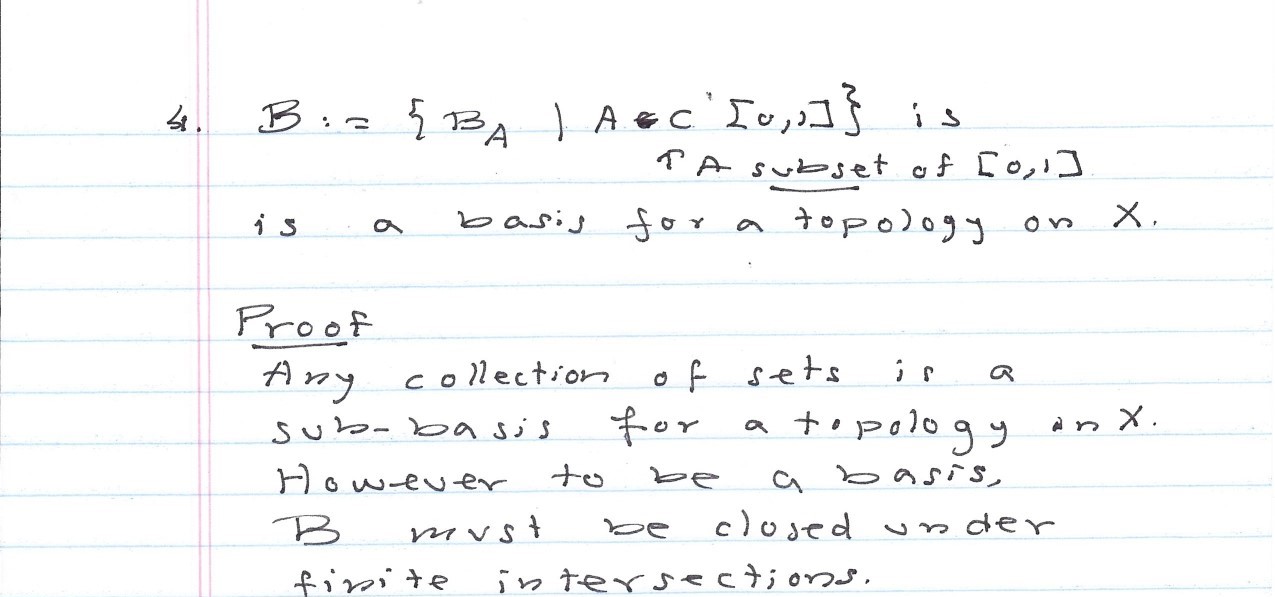 4. B := { B_A | A ⊂ [0,1] } is
↑ A subset of [0,1]
is a basis for a topology on X.
Proof
Any collection of sets is a
sub-basis for a topology on X.
However to be a basis,
B must be closed under
finite intersections.